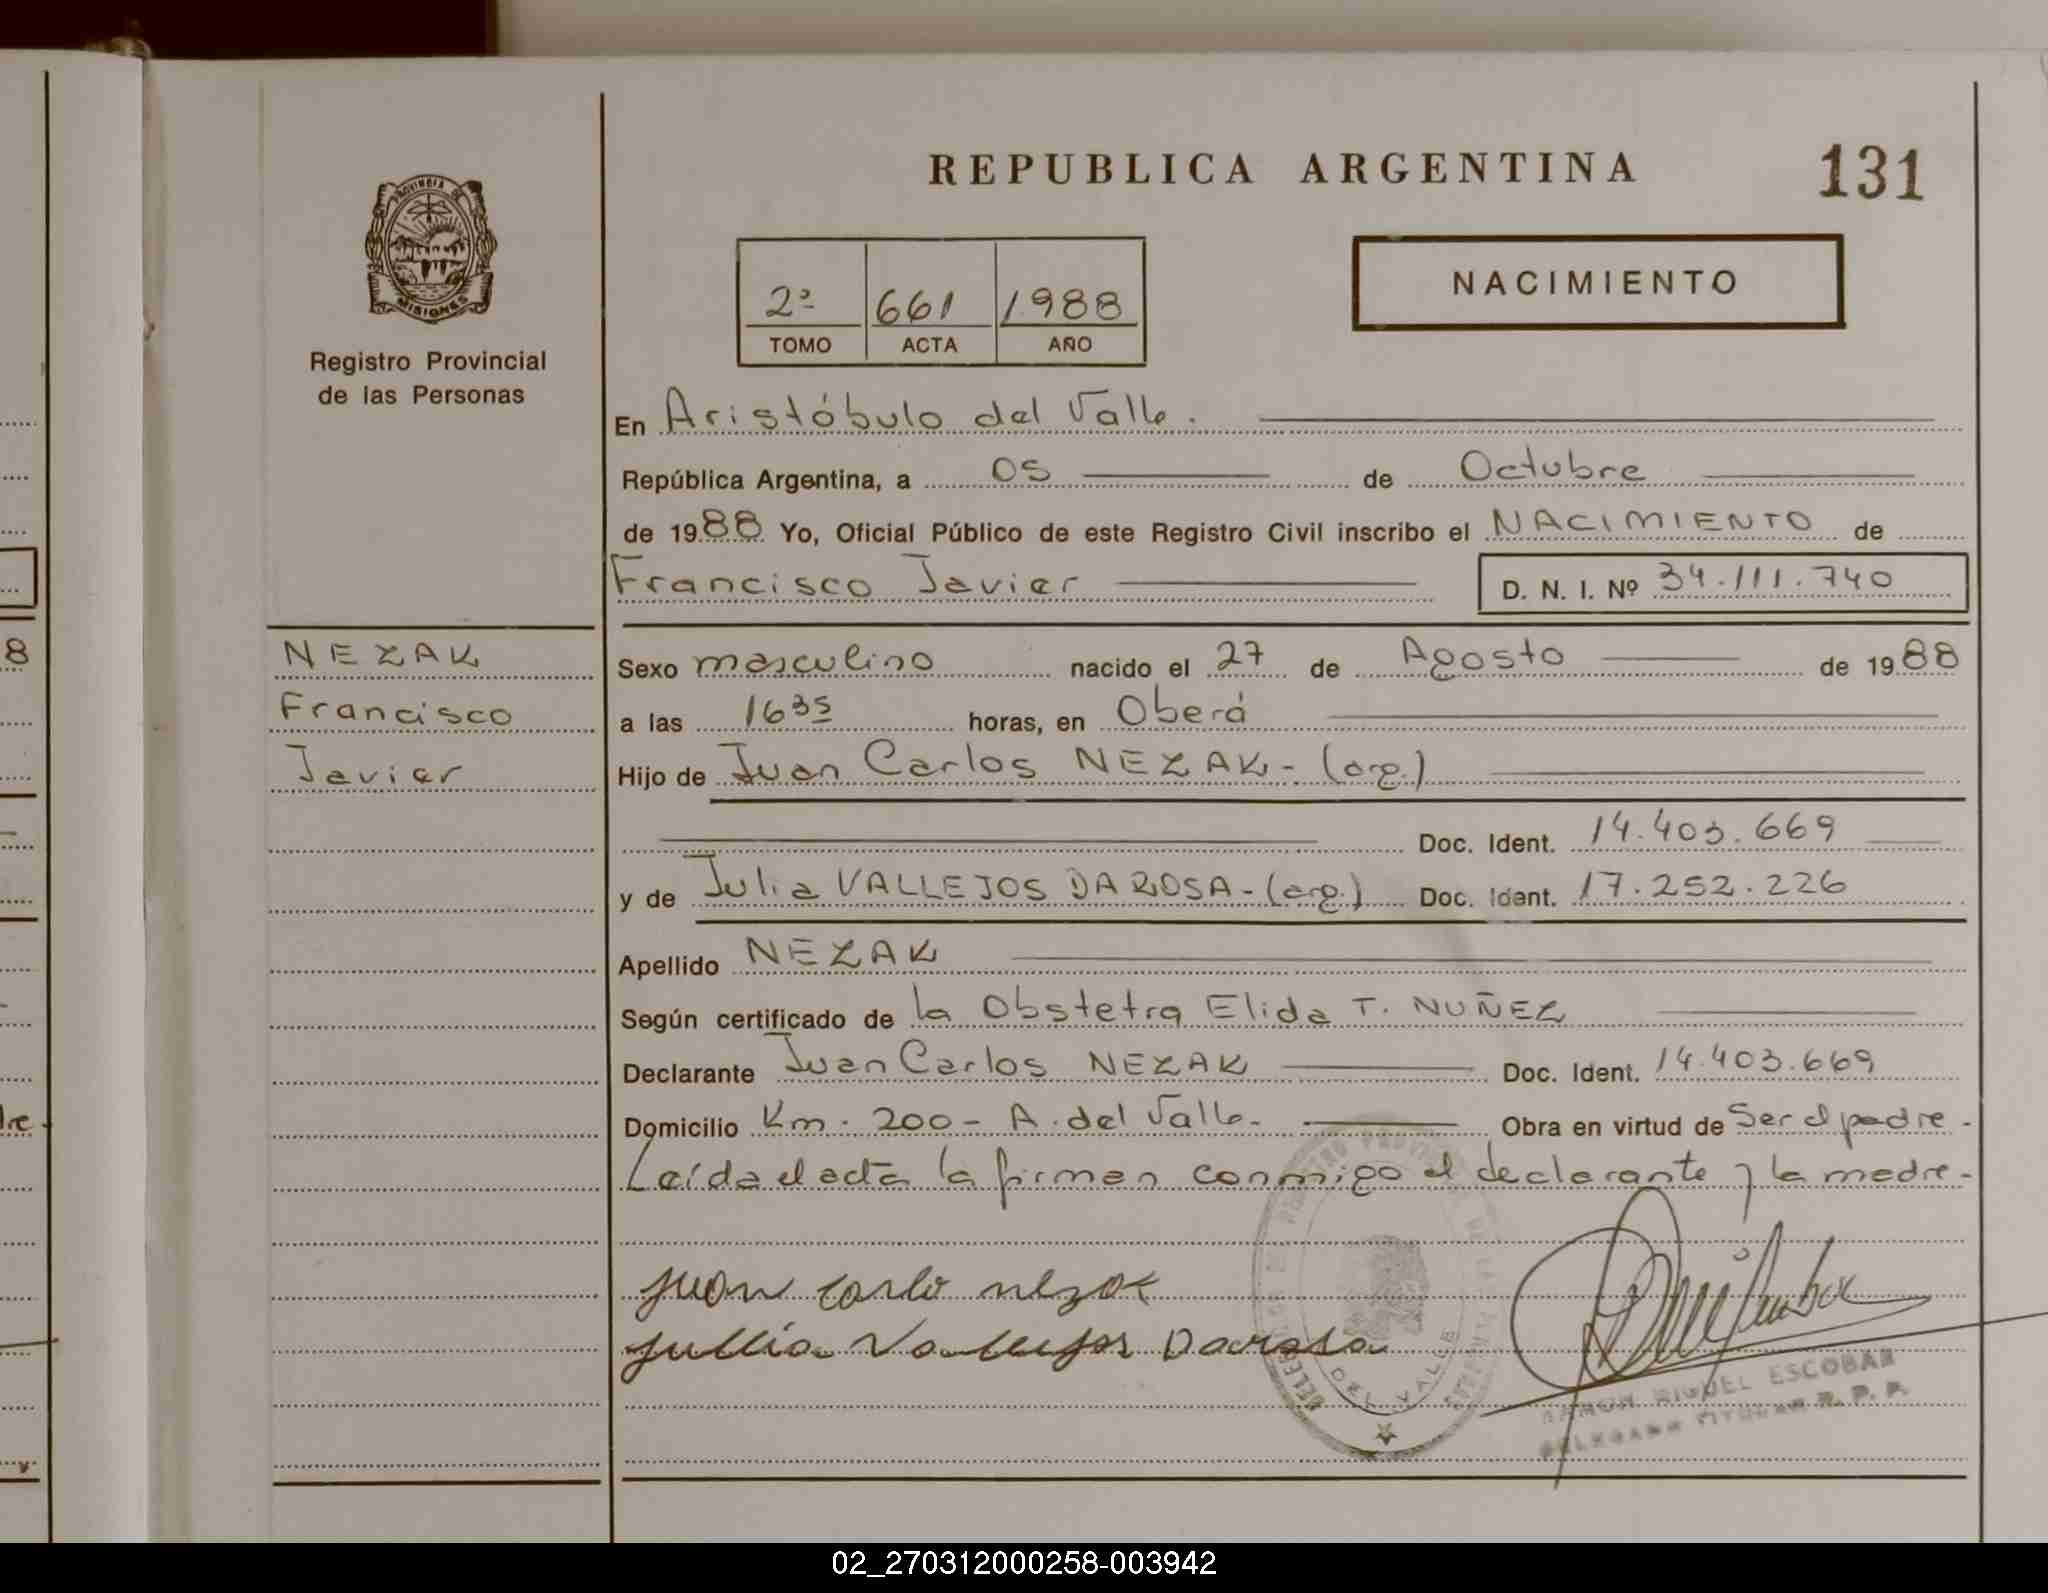 PROVINCIA DE
MISIONES
Registro Provincial
de las Personas
NEZAK
Francisco
Javier
REPUBLICA ARGENTINA
131
2º 661 1988
TOMO ACTA AÑO
NACIMIENTO
En Aristóbulo del Valle.
República Argentina, a 05 de Octubre
de 1988 Yo, Oficial Público de este Registro Civil inscribo el NACIMIENTO de
Francisco Javier D. N. I. Nº 34.111.740
Sexo masculino nacido el 27 de Agosto de 1988
a las 16 35 horas, en Oberá
Hijo de Juan Carlos NEZAK - (arg.)
Doc. Ident. 14.403.669
y de Julia VALLEJOS DA ROSA - (arg.) Doc. Ident. 17.252.226
Apellido NEZAK
Según certificado de la Obstetra Elida T. NUÑEZ
Declarante Juan Carlos NEZAK Doc. Ident. 14.403.669
Domicilio Km. 200 - A. del Valle. Obra en virtud de Ser el padre -
Leída el acta la firman conmigo el declarante y la madre -
juan carlo nezak
jullia Vallejos Darosa
DEL VALLE
RAMON MIGUEL ESCOBAR
DELEGADO TITULAR R. P. P.
8
dre -
02_270312000258-003942